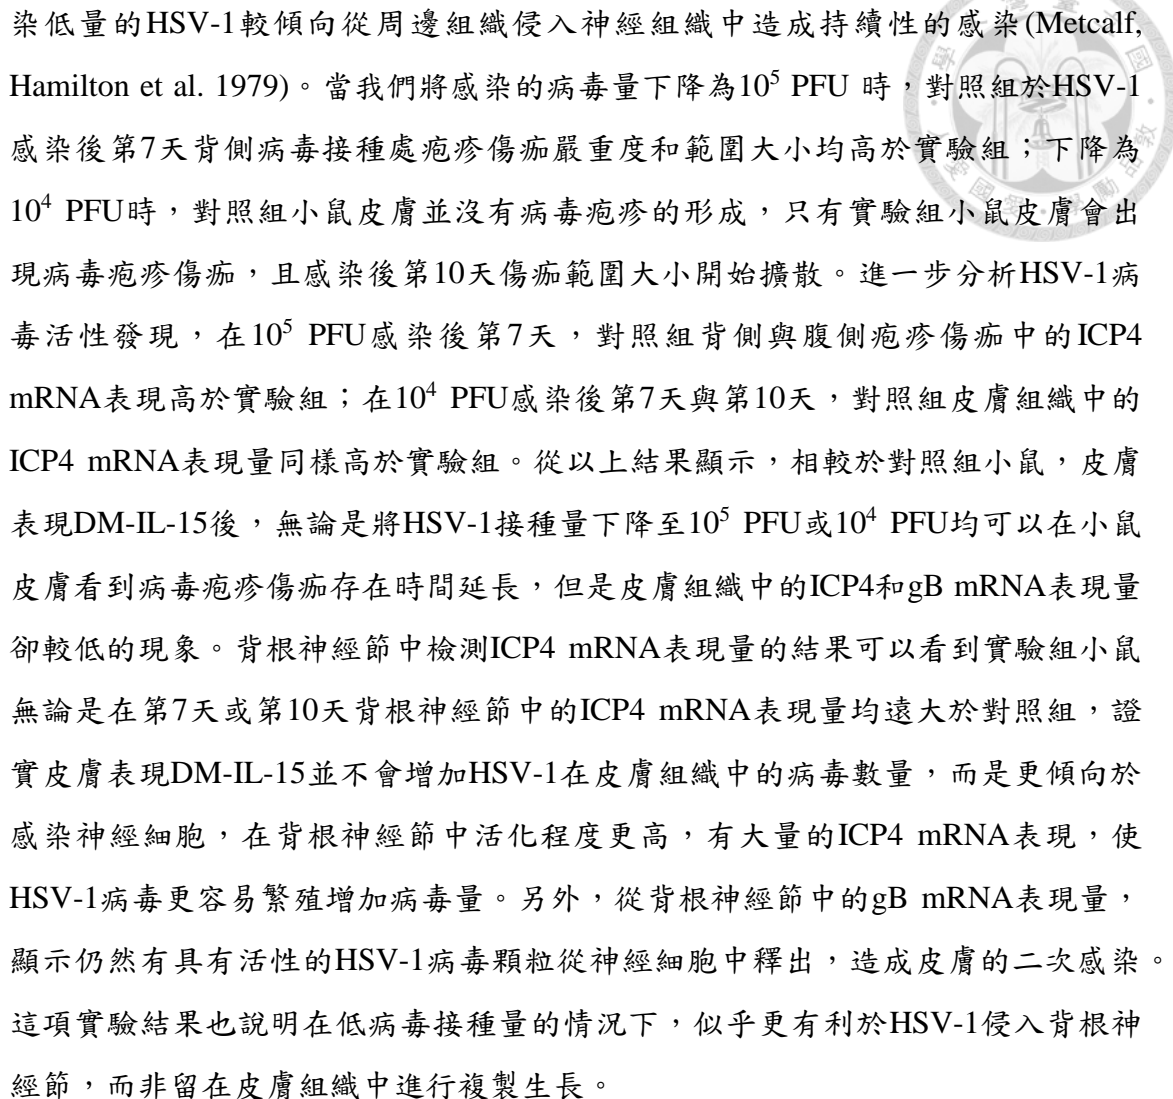 染低量的HSV-1較傾向從周邊組織侵入神經組織中造成持續性的感染(Metcalf,
Hamilton et al. 1979)。當我們將感染的病毒量下降為10⁵ PFU 時，對照組於HSV-1
感染後第7天背側病毒接種處疱疹傷痂嚴重度和範圍大小均高於實驗組；下降為
10⁴ PFU時，對照組小鼠皮膚並沒有病毒疱疹的形成，只有實驗組小鼠皮膚會出
現病毒疱疹傷痂，且感染後第10天傷痂範圍大小開始擴散。進一步分析HSV-1病
毒活性發現，在10⁵ PFU感染後第7天，對照組背側與腹側疱疹傷痂中的ICP4
mRNA表現高於實驗組；在10⁴ PFU感染後第7天與第10天，對照組皮膚組織中的
ICP4 mRNA表現量同樣高於實驗組。從以上結果顯示，相較於對照組小鼠，皮膚
表現DM-IL-15後，無論是將HSV-1接種量下降至10⁵ PFU或10⁴ PFU均可以在小鼠
皮膚看到病毒疱疹傷痂存在時間延長，但是皮膚組織中的ICP4和gB mRNA表現量
卻較低的現象。背根神經節中檢測ICP4 mRNA表現量的結果可以看到實驗組小鼠
無論是在第7天或第10天背根神經節中的ICP4 mRNA表現量均遠大於對照組，證
實皮膚表現DM-IL-15並不會增加HSV-1在皮膚組織中的病毒數量，而是更傾向於
感染神經細胞，在背根神經節中活化程度更高，有大量的ICP4 mRNA表現，使
HSV-1病毒更容易繁殖增加病毒量。另外，從背根神經節中的gB mRNA表現量，
顯示仍然有具有活性的HSV-1病毒顆粒從神經細胞中釋出，造成皮膚的二次感染。
這項實驗結果也說明在低病毒接種量的情況下，似乎更有利於HSV-1侵入背根神
經節，而非留在皮膚組織中進行複製生長。